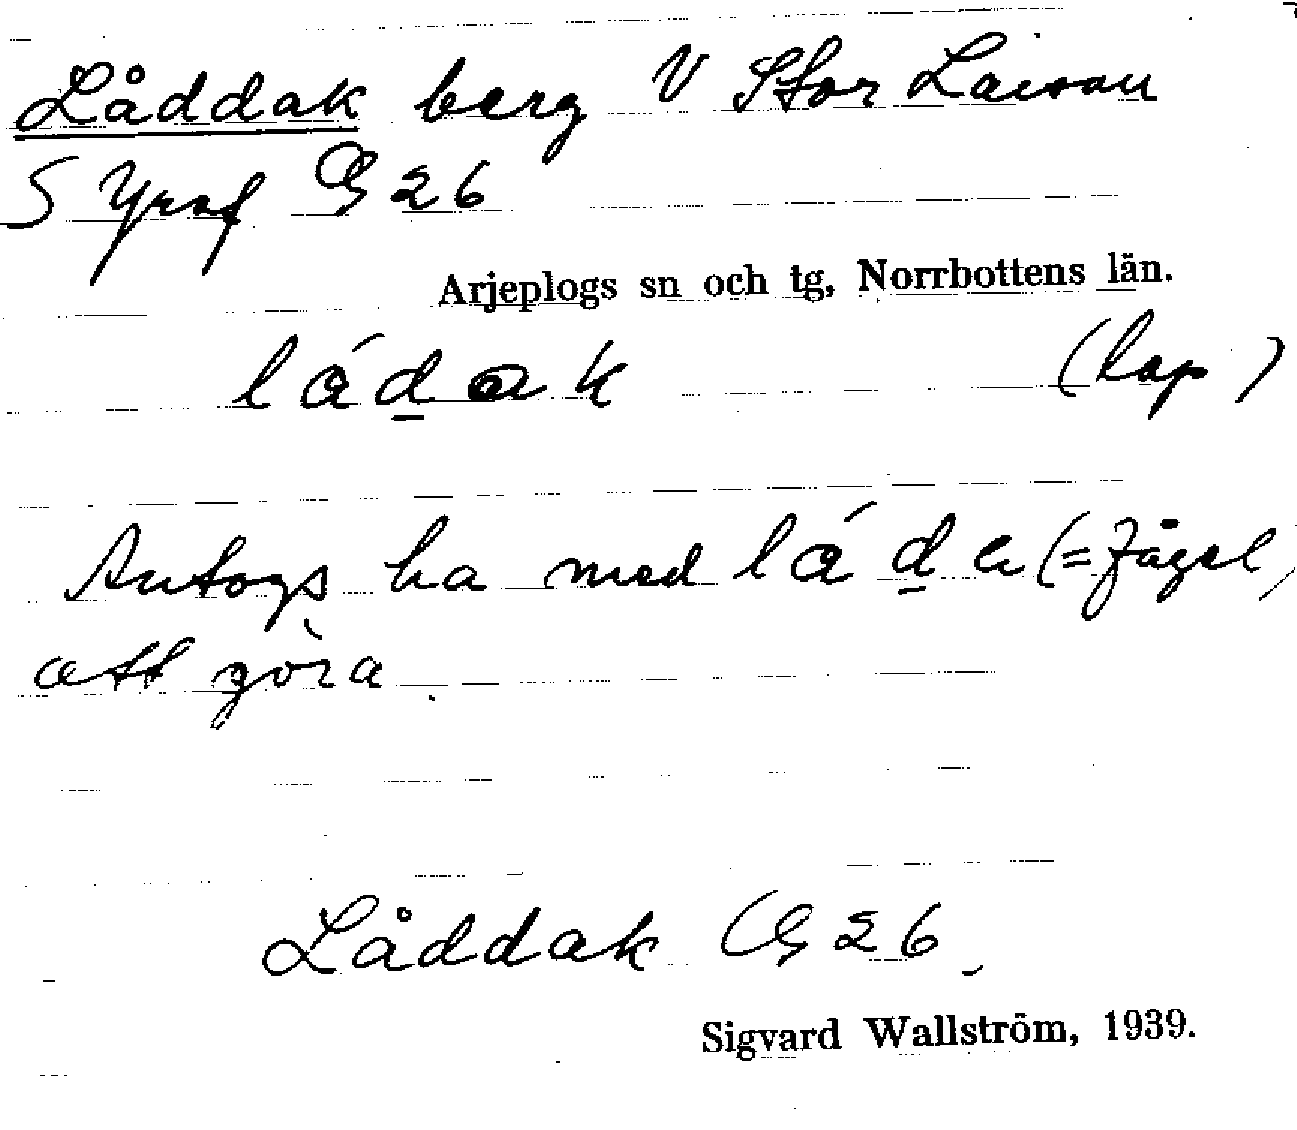 Låddak berg V Stor Laisan
S Yraf G 26
Arjeplogs sn och tg, Norrbottens län.
láḏak (lap)
Antogs ha med láḏe (=fågel)
att göra.
Låddak G 26
Sigvard Wallström, 1939.